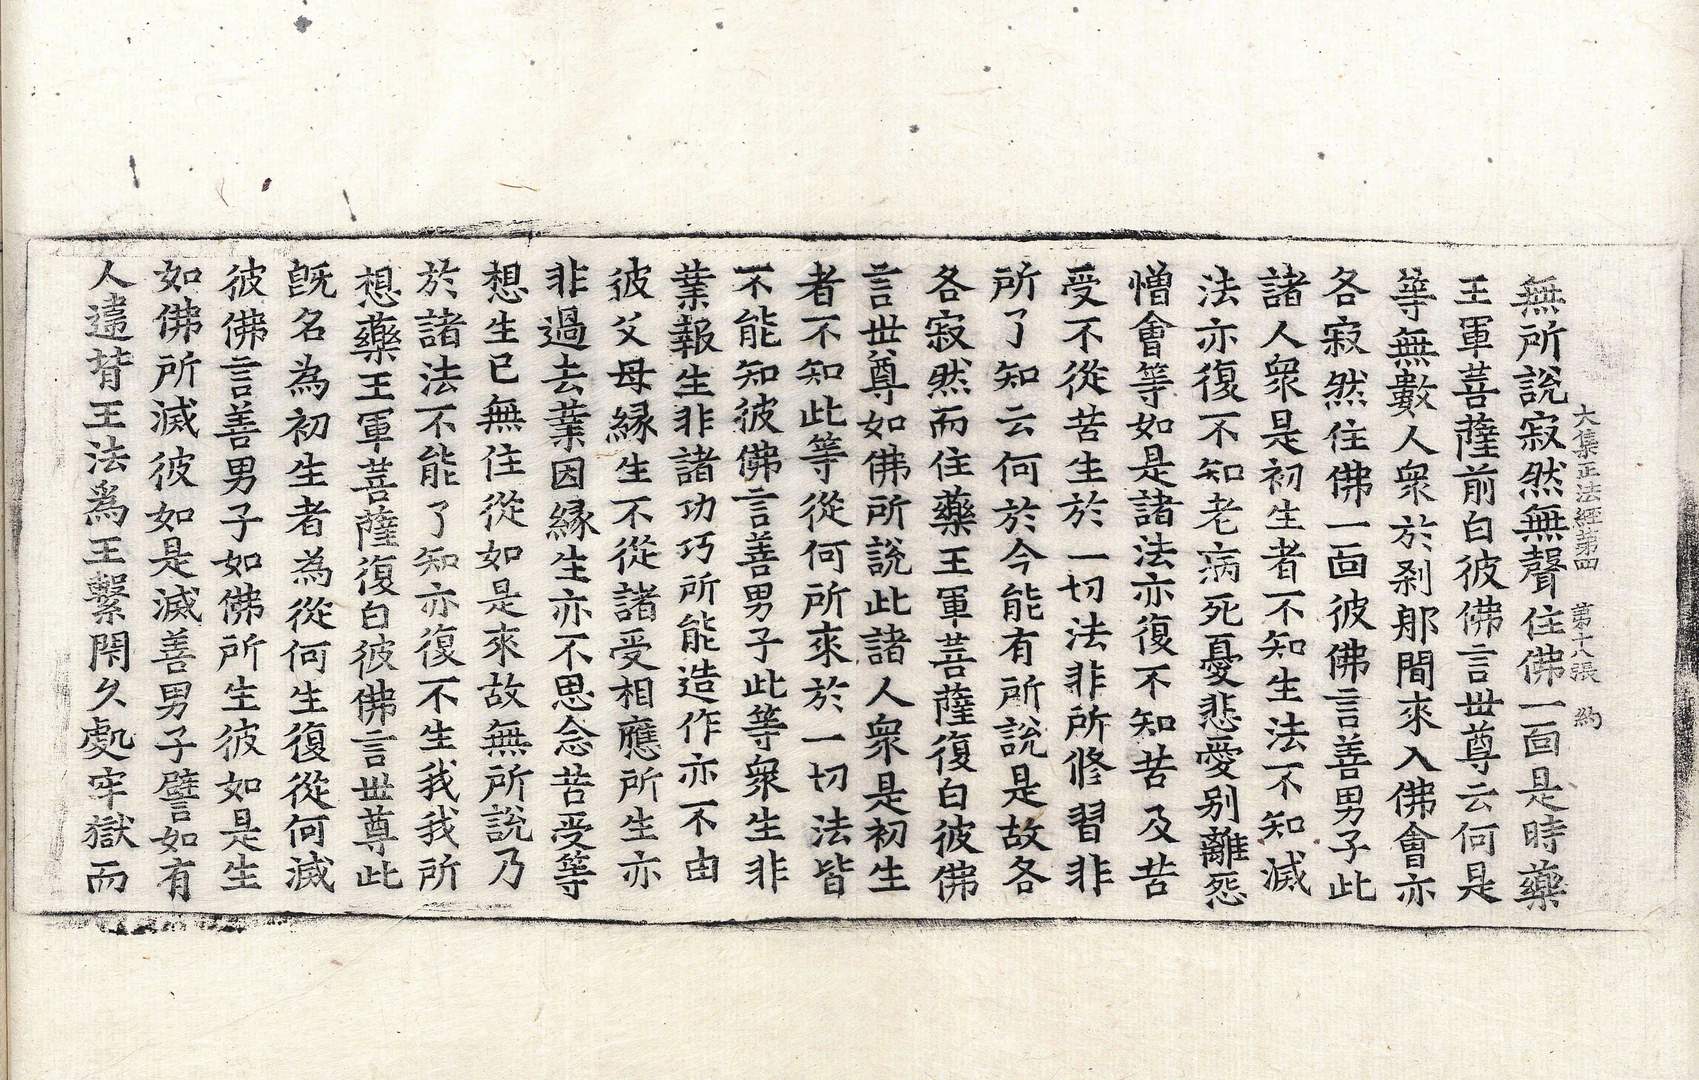 大集正法經第四 第十八張 約
無所說寂然無聲住佛一面是時藥
王軍菩薩前白彼佛言世尊云何是
等無數人衆於刹那間來入佛會亦
各寂然住佛一面彼佛言善男子此
諸人衆是初生者不知生法不知滅
法亦復不知老病死憂悲愛别離怨
憎會等如是諸法亦復不知苦及苦
受不從苦生於一切法非所修習非
所了知云何於今能有所說是故各
各寂然而住藥王軍菩薩復白彼佛
言世尊如佛所說此諸人衆是初生
者不知此等從何所來於一切法皆
不能知彼佛言善男子此等衆生非
業報生非諸功巧所能造作亦不由
彼父母緣生不從諸受相應所生亦
非過去業因緣生亦不思念苦受等
想生已無住從如是來故無所說乃
於諸法不能了知亦復不生我我所
想藥王軍菩薩復白彼佛言世尊此
旣名為初生者為從何生復從何滅
彼佛言善男子如佛所生彼如是生
如佛所滅彼如是滅善男子譬如有
人違背王法爲王繫閇久處牢獄而